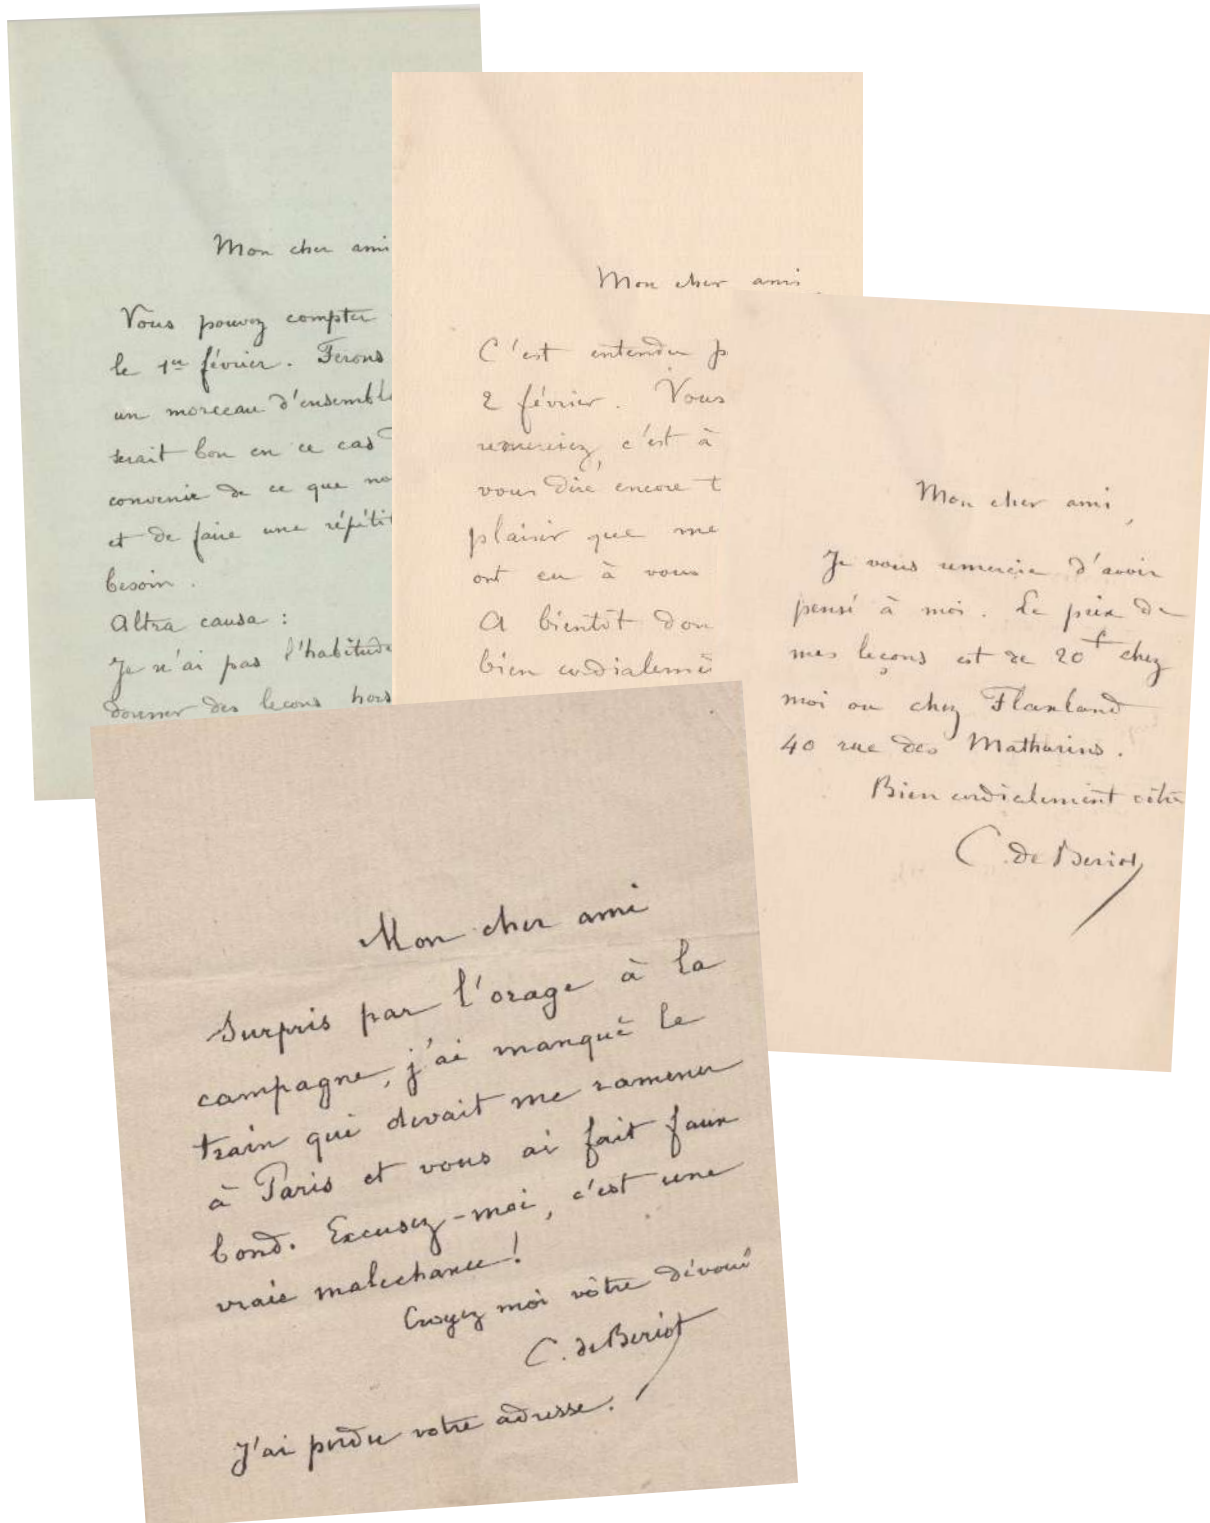 Mon cher ami
Vous pouvez compter
le 1er février. Ferons
un morceau d'ensemble
serait bon en ce cas
convenir de ce que no
et de faire une répétit
besoin.
Altra causa :
Je n'ai pas l'habitude
donner des leçons hors
Mon cher ami,
C'est entendu p
2 février. Vous
remerciez, c'est à
vous dire encore t
plaisir que me
ont eu à vous
A bientôt don
bien cordialeme
Mon cher ami,
Je vous remercie d'avoir
pensé à moi. Le prix de
mes leçons est de 20f chez
moi ou chez Flaxland
40 rue des Mathurins.
Bien cordialement vôtre
C. de Beriot
Mon cher ami
Surpris par l'orage à la
campagne, j'ai manqué le
train qui devait me ramener
à Paris et vous ai fait faux
bond. Excusez-moi, c'est une
vraie malechance !
Croyez moi vôtre dévoué
C. de Beriot
J'ai perdu votre adresse.